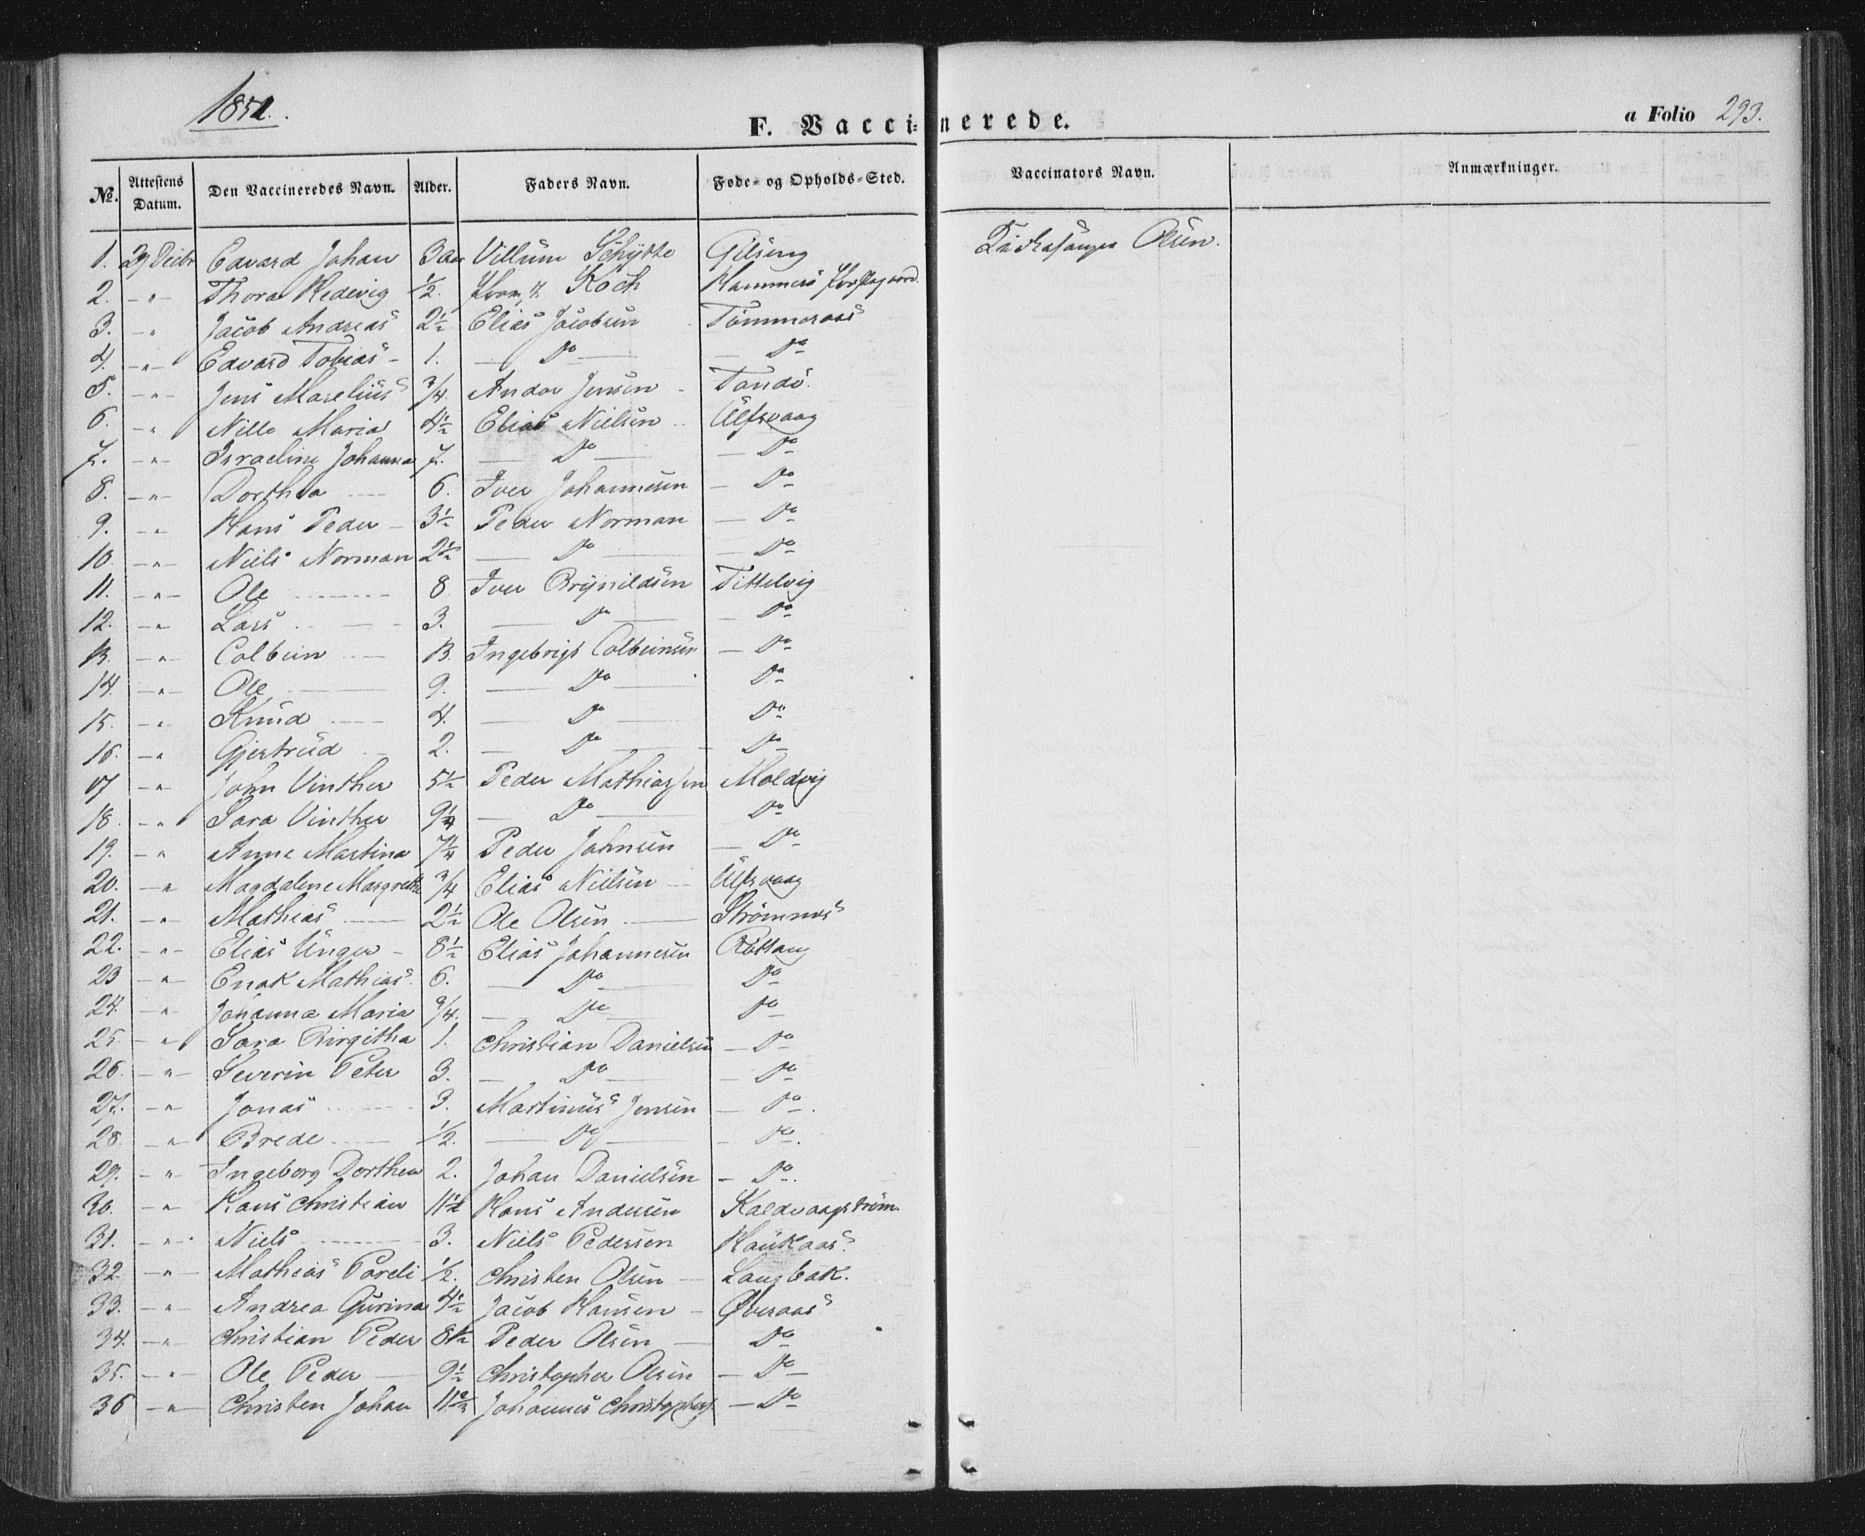 1851.
F. Vaccinerede.
a Folio 293.
№. Attestens Datum. Den Vaccineredes Navn. Alder. Faders Navn. Føde- og Opholds-Sted. Vaccinators Navn. Anmærkninger.
1. 29 Decbr Edvard Johan 3 Aar Villum Schytte Gilseng Olsen.
2. -"- Thora Hedevig ½. Koch Hammerø
3. -"- Jacob Andreas 2½ Elias Jacobsen Tømmeraas
4. -"- Edvard Tobias - 1. Do Do
5. -"- Jens Marelius ¾. Andor Jensen - Tandø.
6. -"- Nille Maria 4½ Elias Nielsen Ulfsvaag
7. -"- Israeline Johanna 7. Do Do
8. -"- Dorthea 6. Iver Johannesen Do
9. -"- Hans Peder - 3½ Peder Norman Do
10. -"- Niels Norman 2½ Do Do
11. -"- Ole 8. Iver Brynildsen Tittelvig
12. -"- Lars 3. Do Do
13. -"- Colbein 13. Ingebrigt Colbeinsen Do
14. -"- Ole 9. Do Do
15. -"- Knud 4. Do Do
16. -"- Gjertrud 2. Do Do
17 -"- John Vinther 5½ Peder Mathiassen Moldvig
18. -"- Sara Vinther 9¼ Do Do
19. -"- Anne Martina 7¼ Peder Johnsen Do
20. -"- Magdalene Margrethe ¾ Elias Nielsen Ulfsvaag
21. -"- Mathias 2½ Ole Olsen Strømnes
22. -"- Elias Unger - 8½ Elias Johannesen Røttang
23 -"- Enok Mathias. 6. Do Do
24. -"- Johanna Maria ¾. Do Do
25 -"- Sara Birgitha 1. Christian Danielsen Do
26. -"- Severin Peter 3. Do Do
27. -"- Jonas 3. Martinus Jensen Do.
28. -"- Brede ½. Do Do.
29. -"- Ingeborg Dorthea 2. Johan Danielsen Do.
30. -"- Hans Christian 11½ Hans Andersen Kaldvaagstrøm.
31. -"- Niels 3. Niels Pedersen Haukaas.
32. -"- Mathias Pareli ½. Christen Olsen Langbak.
33. -"- Andrea Gurina 4½ Jacob Hansen Øveraas
34. -"- Christian Peder 8½ Peder Olsen Do
35. -"- Ole Peder 9½ Christopher Olsen Do
36 -"- Christen Johan 11½ Johannes Christophers. Do